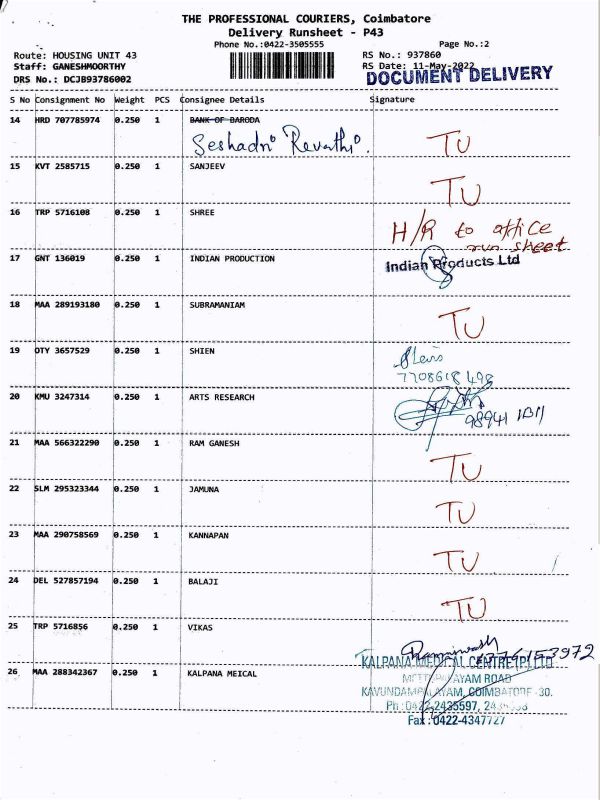 THE PROFESSIONAL COURIERS, Coimbatore
Delivery Runsheet - P43
Phone No.:0422-3505555 Page No.:2
Route: HOUSING UNIT 43 RS No.: 937860
Staff: GANESHMOORTHY RS Date: 11-May-2022
DRS No.: DCJB93786002 DOCUMENT DELIVERY
S No Consignment No Weight PCS Consignee Details Signature
14 HRD 707785974 0.250 1 BANK OF BARODA
Seshadri Revathi. TU
15 KVT 2585715 0.250 1 SANJEEV TU
16 TRP 5716108 0.250 1 SHREE H/R to office
run sheet
17 GNT 136019 0.250 1 INDIAN PRODUCTION Indian Products Ltd
18 MAA 289193180 0.250 1 SUBRAMANIAM TU
19 OTY 3657529 0.250 1 SHIEN
7708618 498
20 KMU 3247314 0.250 1 ARTS RESEARCH
21 MAA 566322290 0.250 1 RAM GANESH TU
22 SLM 295323344 0.250 1 JAMUNA TU
23 MAA 290758569 0.250 1 KANNAPAN TU
24 DEL 527857194 0.250 1 BALAJI TU
25 TRP 5716856 0.250 1 VIKAS
KALPANA MEDICAL CENTRE (P) LTD
26 MAA 288342367 0.250 1 KALPANA MEICAL ROAD
KAVUNDAMPALAYAM, COIMBATORE - 30.
Ph: 0422-2435597,
Fax: 0422-4347727